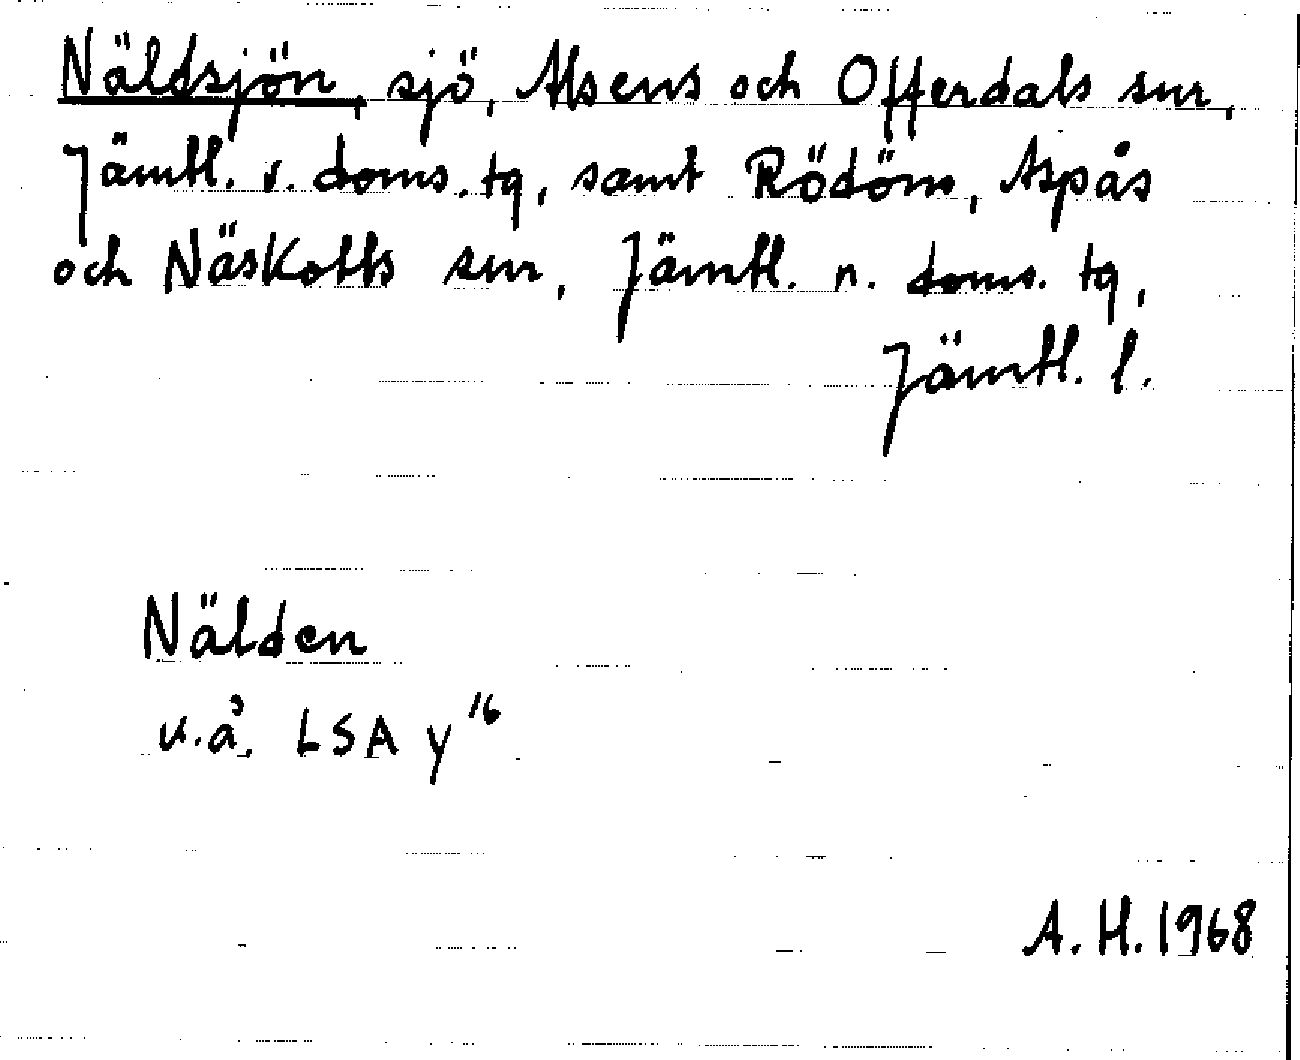 Näldsjön, sjö, Alsens och Offerdals snr,
Jämtl. v. doms. tg, samt Rödöns, Aspås
och Näskotts snr, Jämtl. n. doms. tg,
Jämtl. l.
Nälden
u.å. LSA y 16
A. H. 1968